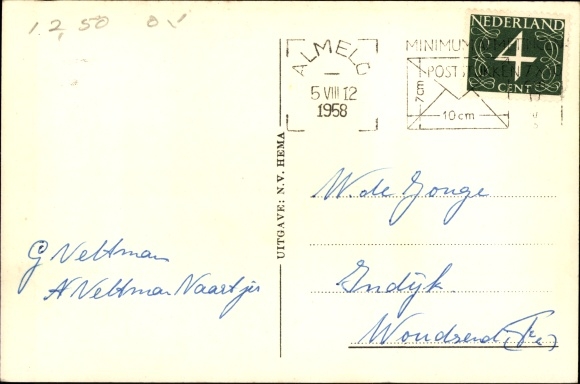 12,50
NEDERLAND
4
CENT
ALMELO
5 VIII 12
1958
MINIMUM
POSTSTUKKEN
7 cm
10 cm
UITGAVE: N.V. HEMA
W. de Jonge
Indijk
Woudsend (Fr.)
G Veltman
A Veltman Naartjes